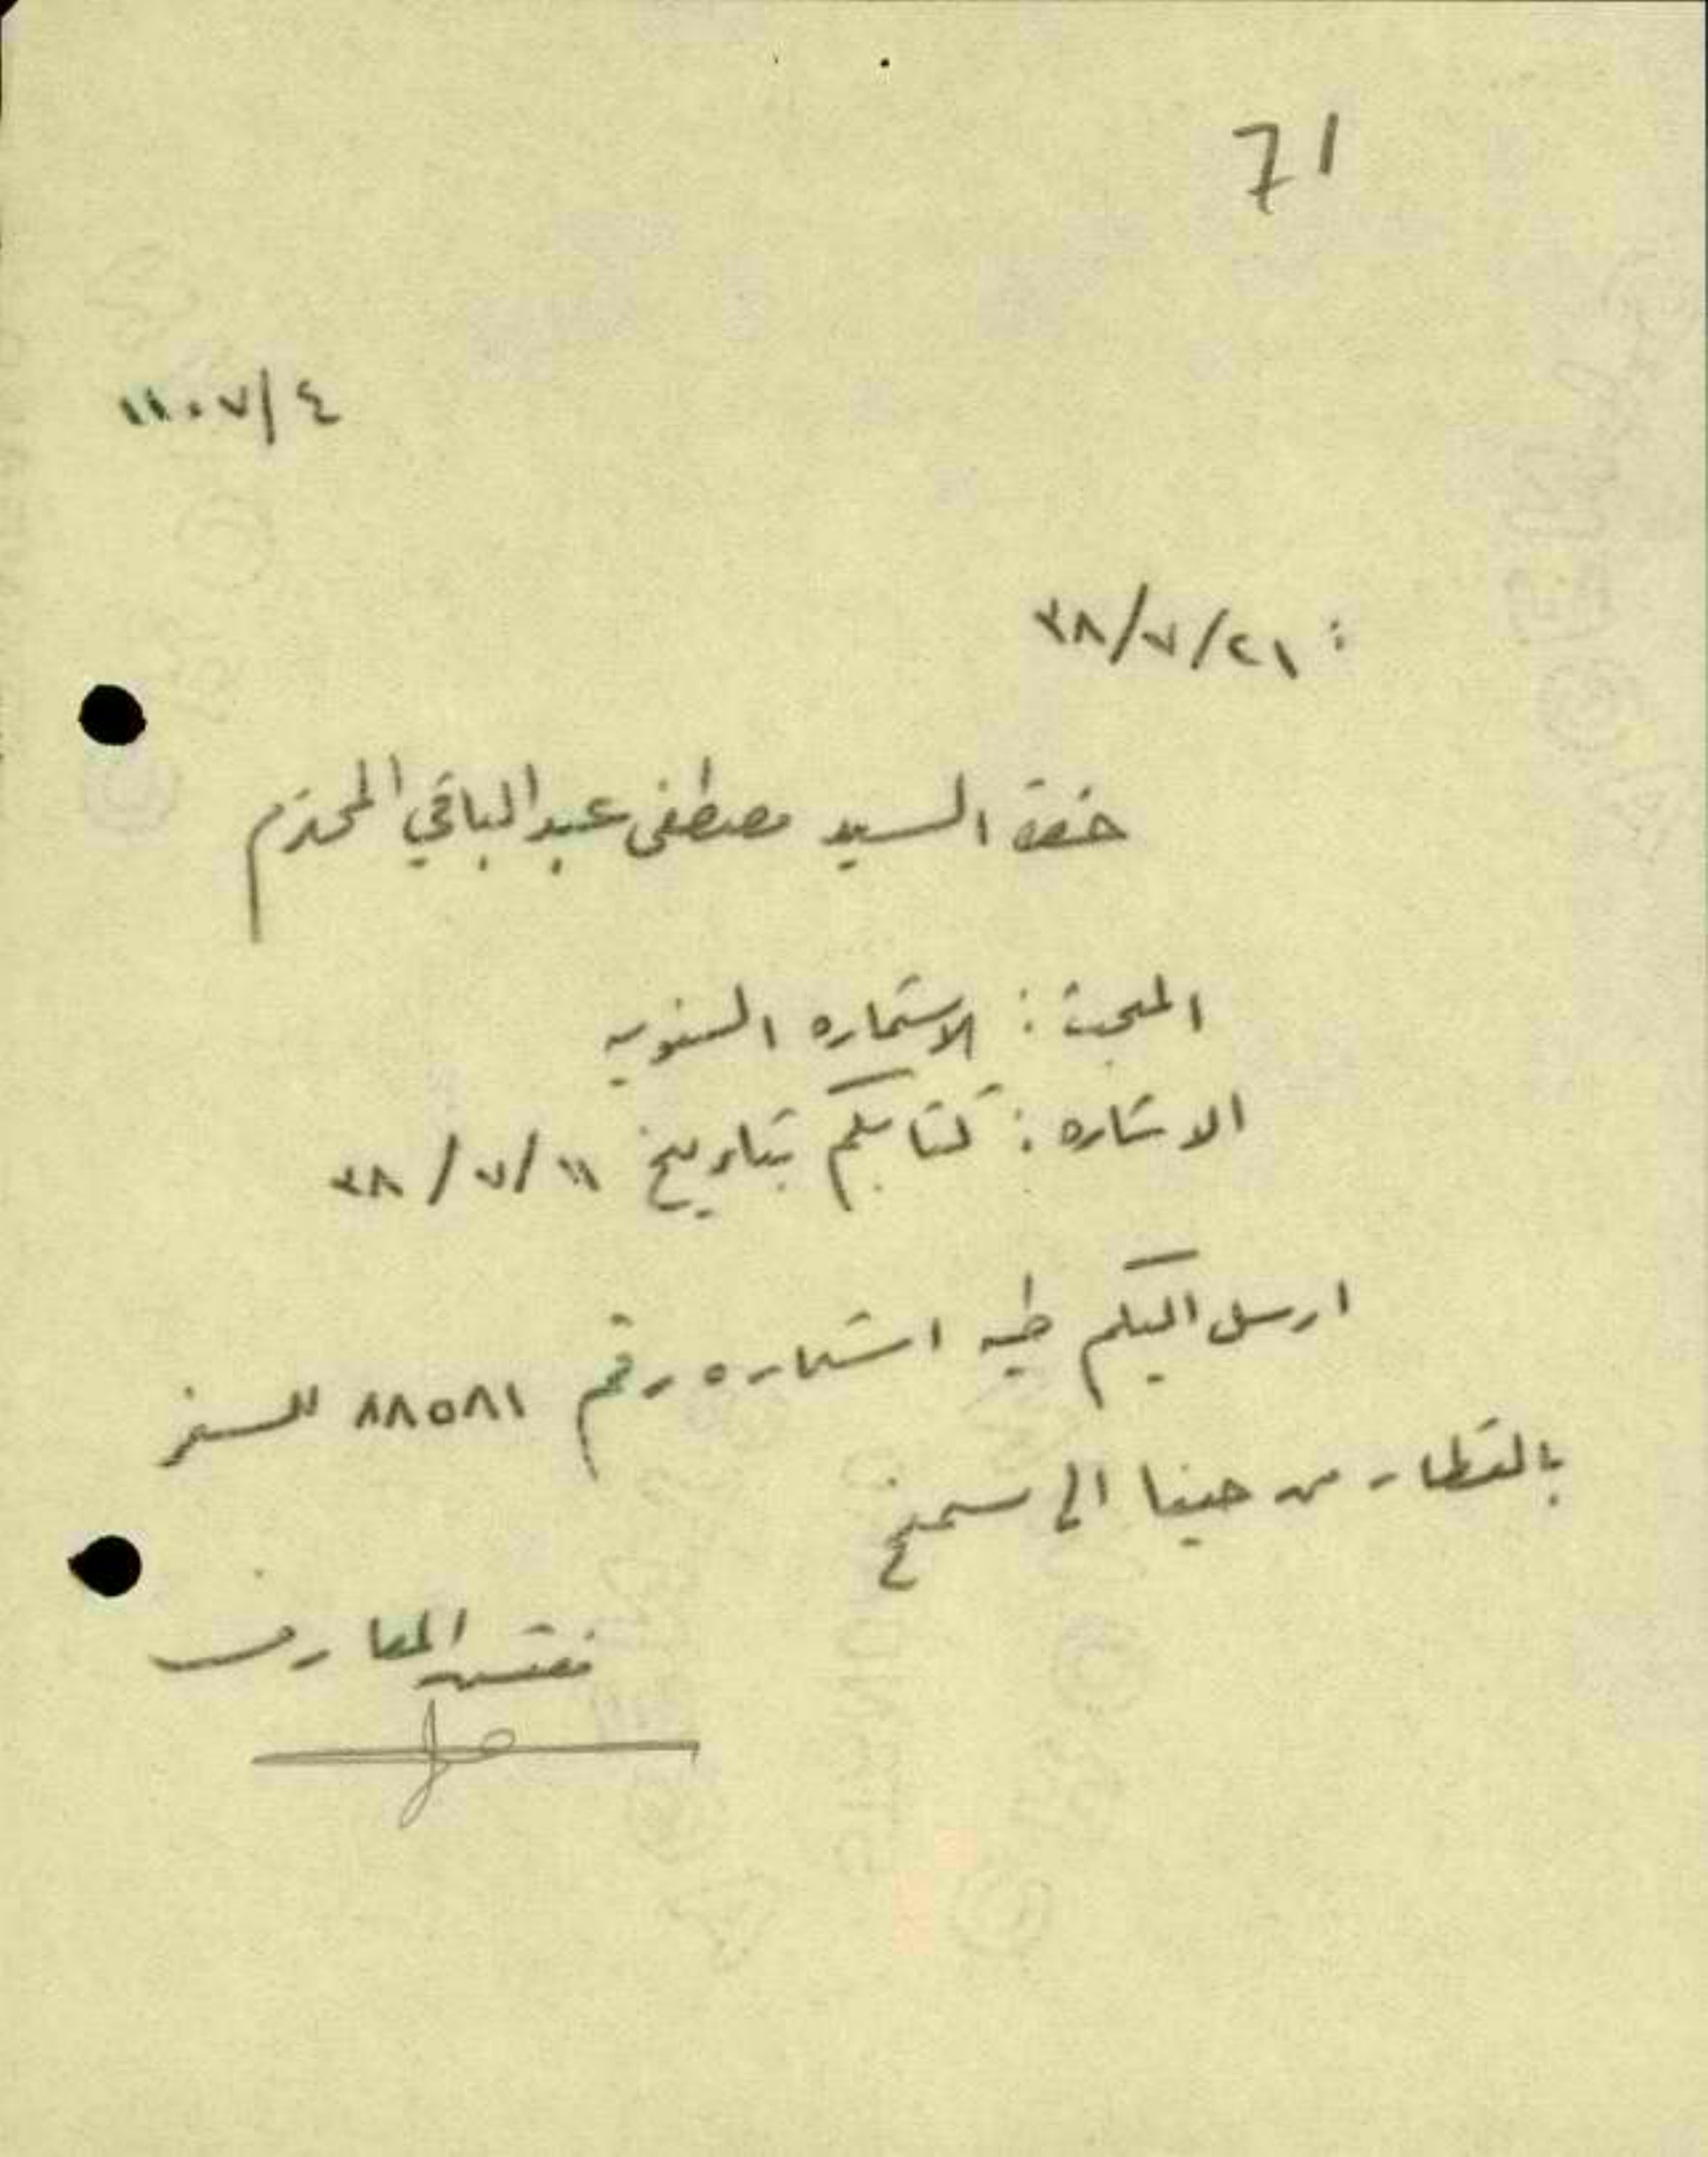 71
١١٠٧/٤
: ٢١/٧/٣٨
حضرة السيد مصطفى عبد الباقي المحترم
المبحث : الاستماره السنويه
الاشاره : كتابكم بتاريخ ١١/٧/٣٨
ارسل اليكم طيه استماره رقم ٨٨٥٨١ للسفر
بالقطار من حيفا الى سمخ
مفتش المعارف